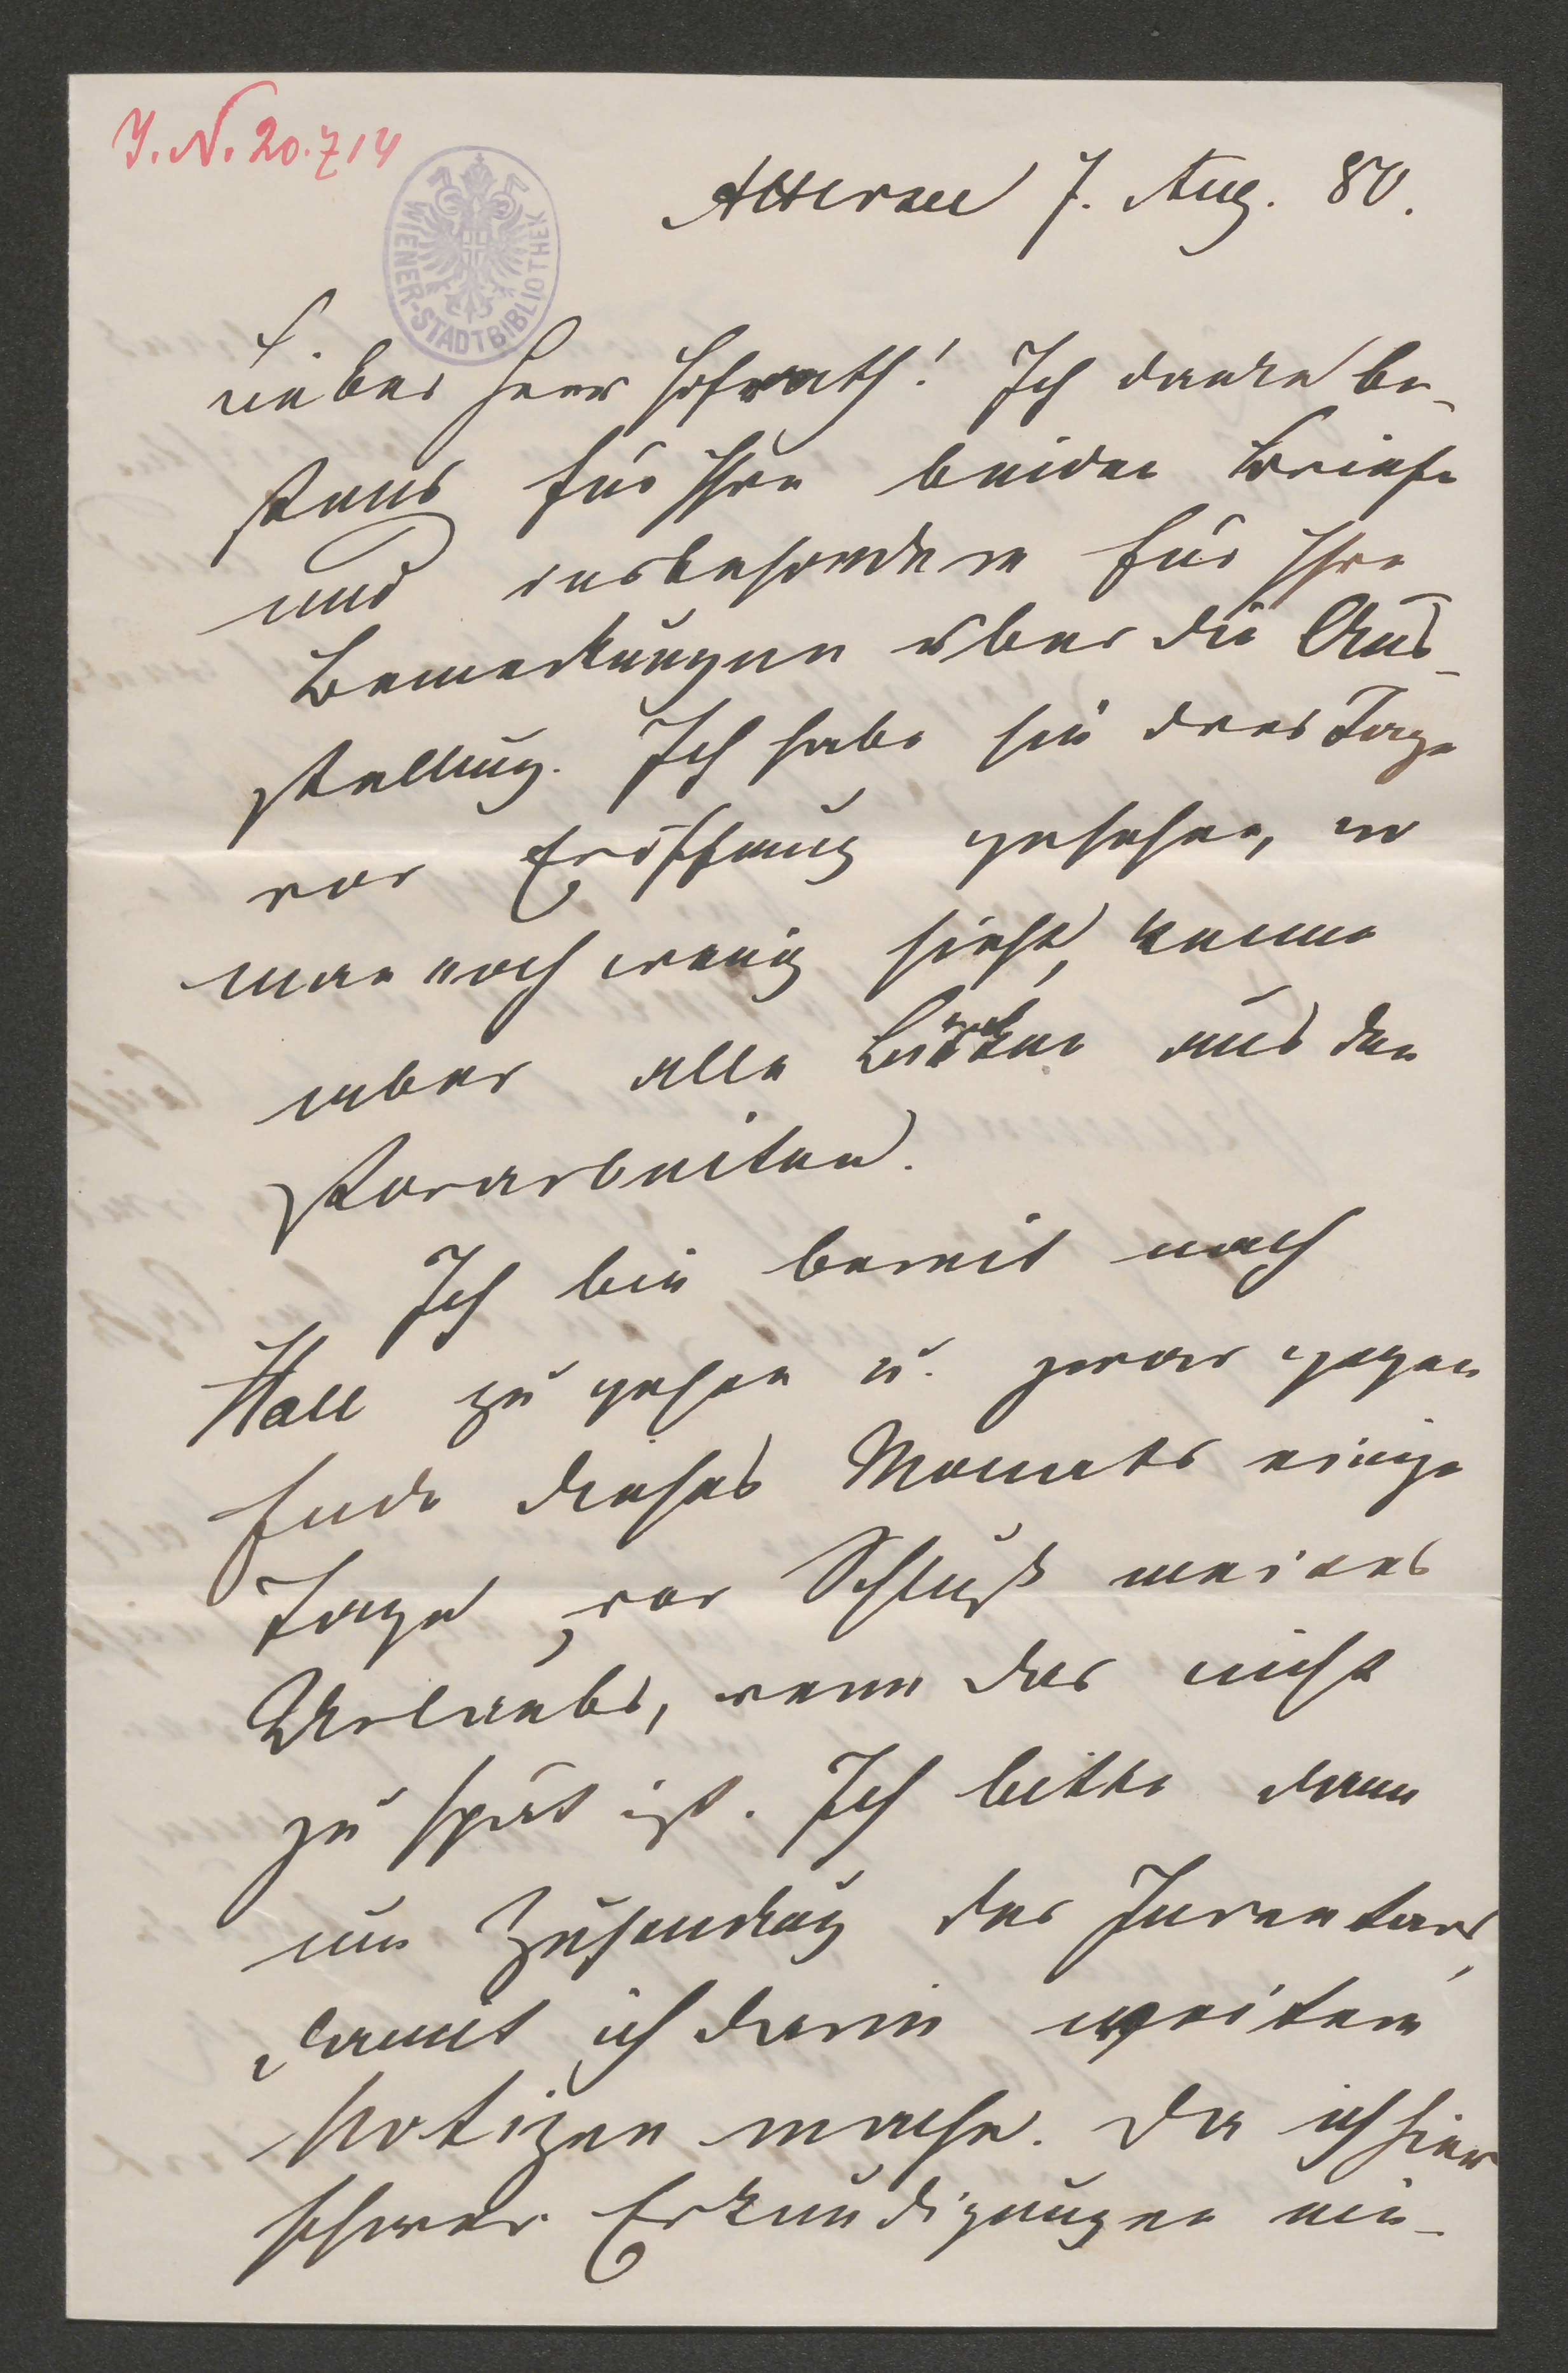 J. N. 20.714
WIENER-STADTBIBLIOTHEK
Attersee 7. Aug. 80.
Lieber Herr Hofrath! Ich danke be-
stens für Ihre beiden Briefe
und insbesondere für Ihre
Bemerkungen über die Aus-
stellung. Ich habe sie drei Tage
vor Eröffnung gesehen, wo
man noch wenig sieht, kenne
aber alle aus den
Vorarbeiten.
Ich bin bereit nach
Hall zu gehen u. zwar gegen
Ende dieses Monats einige
Tage, vor Schluß meines
Urlaubs, wenn das nicht
zu spät ist. Ich bitte dann
um Zusendung des Inventars,
damit ich darin weitere
Notizen mache. Da ich hier
schwer Erkundigungen ein-